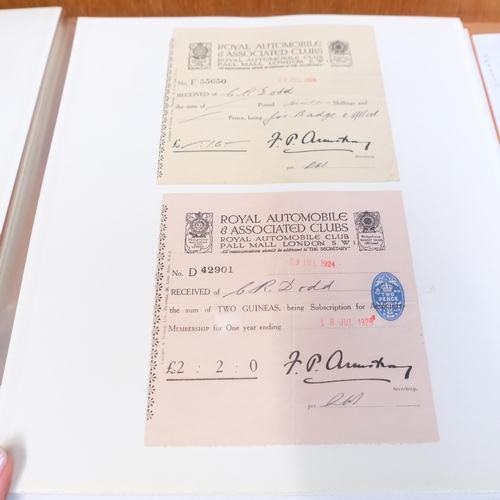 ROYAL AUTOMOBILE
& ASSOCIATED CLUBS
ROYAL AUTOMOBILE CLUB
PALL MALL LONDON S W 1
All communications should be addressed to "THE SECRETARY"
JUL 1924
No. F 55650
RECEIVED of C. R. Dodd
the sum of Pound Shillings and
Pence, being for Badge &
£ : 16 : F. P. Armstrong
Secretary.
ROYAL AUTOMOBILE
& ASSOCIATED CLUBS
ROYAL AUTOMOBILE CLUB
PALL MALL LONDON S W 1
All communications should be addressed to "THE SECRETARY"
JUL 1924
No. D 42901
RECEIVED of C. R. Dodd
TWO PENCE
the sum of TWO GUINEAS, being Subscription for
Membership for One year ending 18 JUL 1925
£2 : 2 : 0 F. P. Armstrong
Secretary.
per